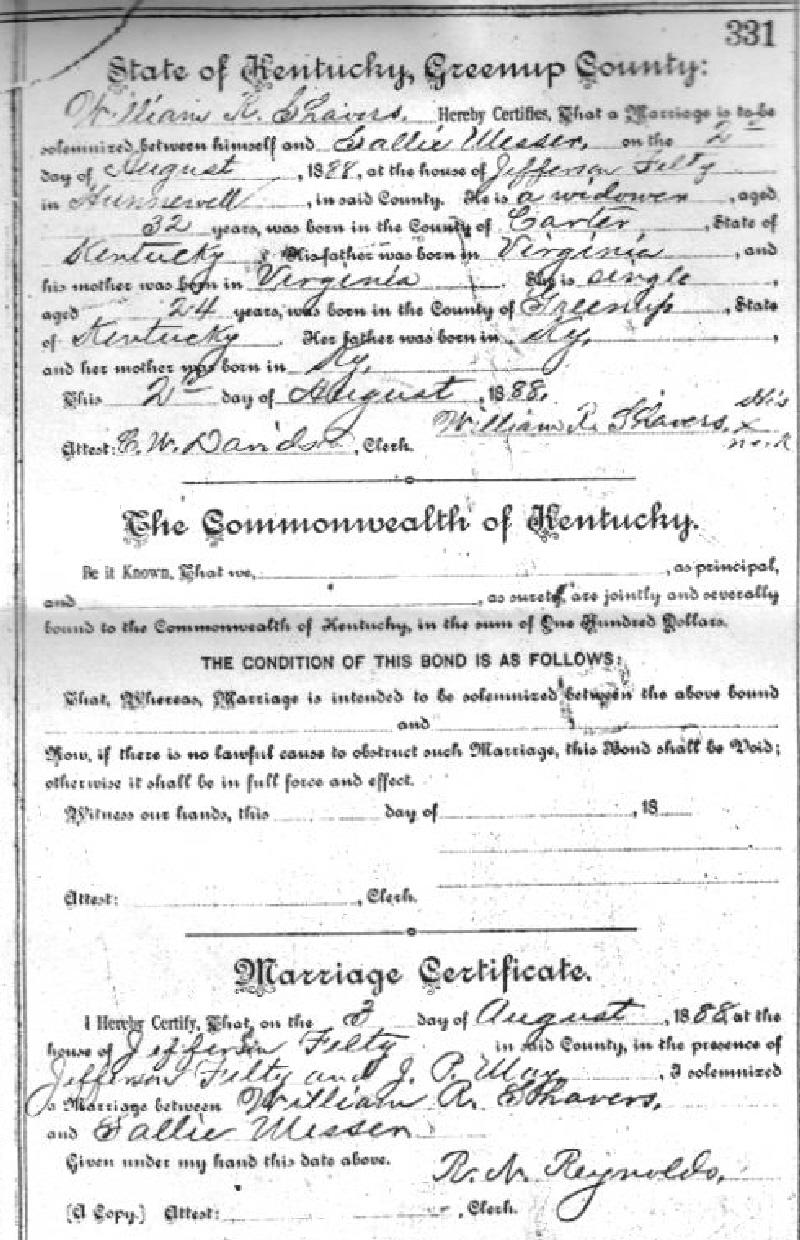 331
State of Kentucky, Greenup County:
William R. Shavers. Hereby Certifies, That a Marriage is to be
solemnized between himself and Sallie Messer, on the 2nd
day of August, 1888, at the house of Jefferson Felty
in Hunnewell, in said County. He is a widower, aged
32 years, was born in the County of Carter, State of
Kentucky. His father was born in Virginia, and
his mother was born in Virginia. She is single,
aged 24 years, was born in the County of Greenup, State
of Kentucky. Her father was born in Ky,
and her mother was born in Ky.
This 2nd day of August, 1888.
William R. Shavers, his x mark
Attest: C. W. Davids, Clerk.
The Commonwealth of Kentucky.
Be it Known, That we, , as principal,
and , as surety, are jointly and severally
bound to the Commonwealth of Kentucky, in the sum of One Hundred Dollars.
THE CONDITION OF THIS BOND IS AS FOLLOWS:
That, Whereas, Marriage is intended to be solemnized between the above bound
and
Now, if there is no lawful cause to obstruct such Marriage, this Bond shall be Void;
otherwise it shall be in full force and effect.
Witness our hands, this day of , 18
Attest: , Clerk.
Marriage Certificate.
I Hereby Certify, That, on the 3 day of August, 1888, at the
house of Jefferson Felty in said County, in the presence of
Jefferson Felty and J. P. May, I solemnized
a Marriage between William R. Shavers,
and Sallie Messer
Given under my hand this date above. R. N. Reynolds,
[A Copy.] Attest: , Clerk.